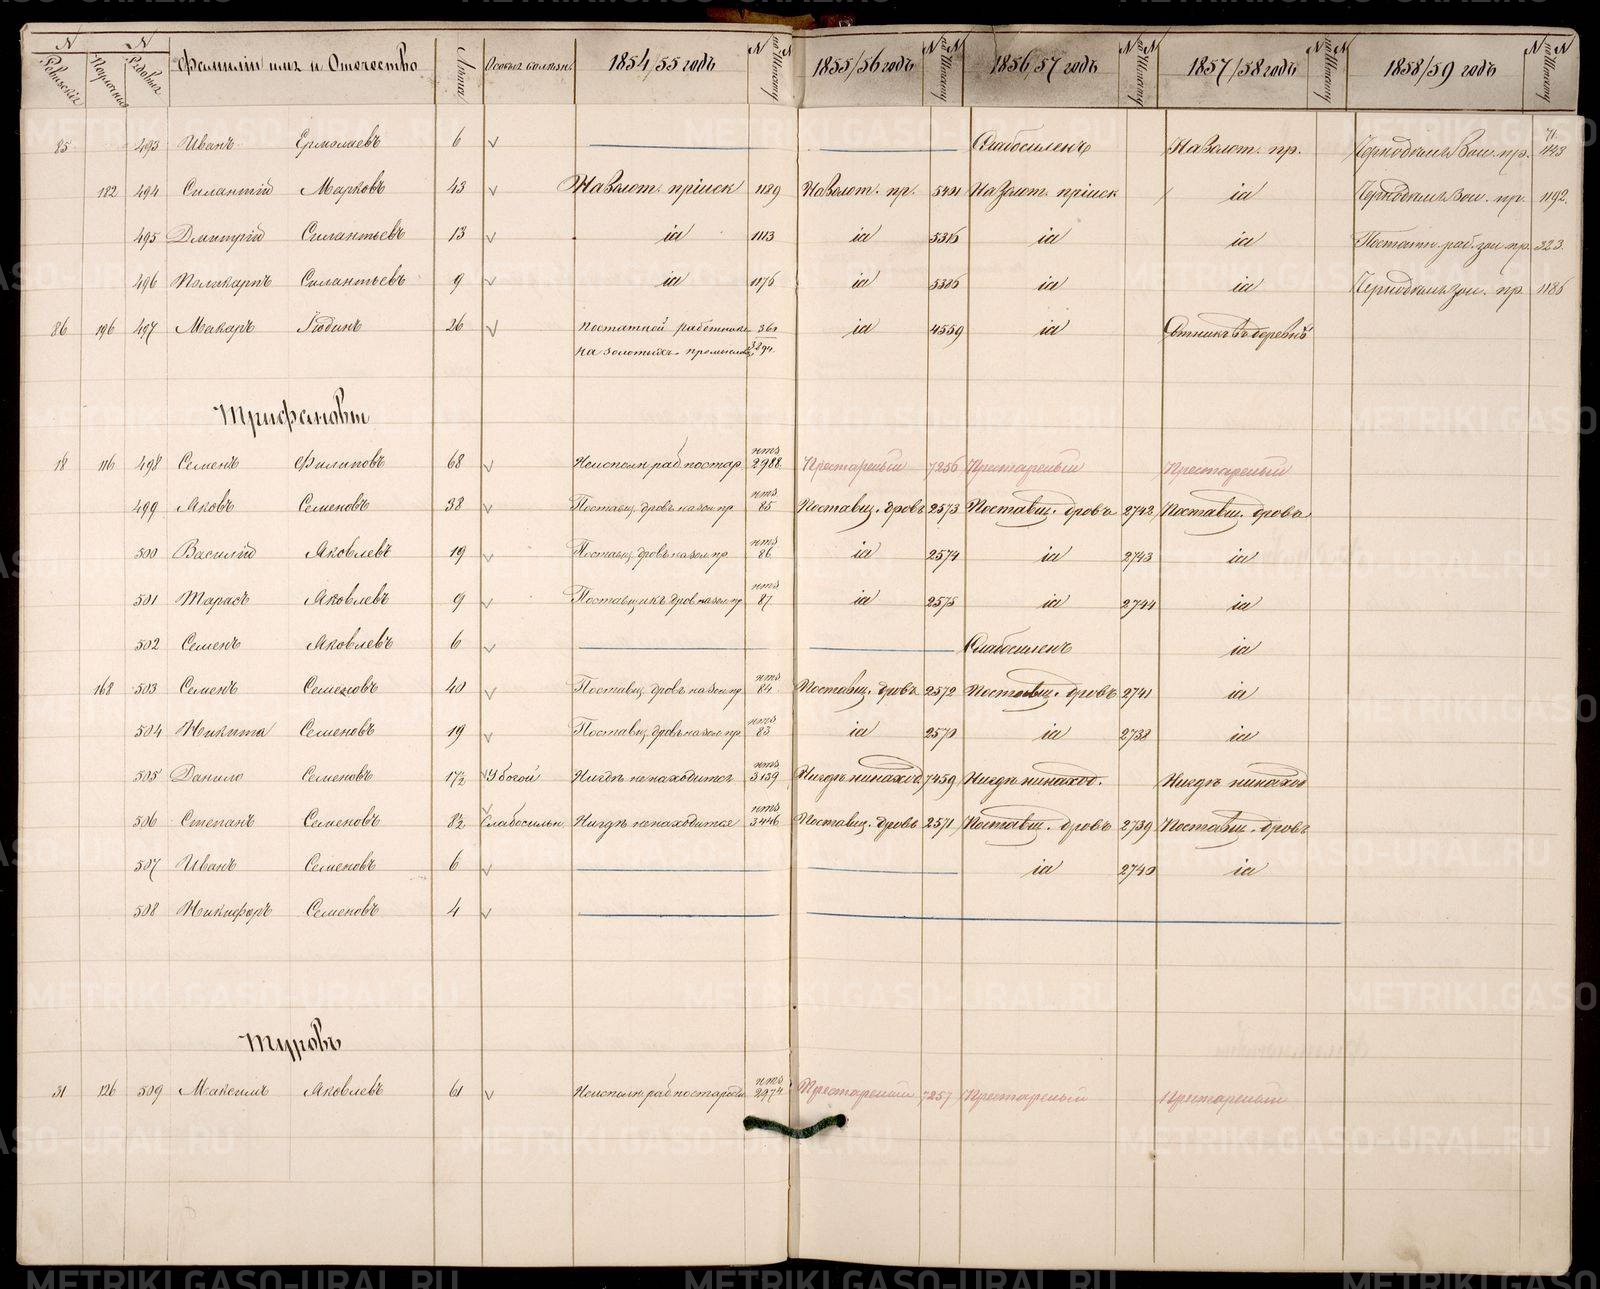 N N Фамилiи имя и Отчество Лѣта Особыя болѣзни 1854/55 годъ N по Штату 1855/56 годъ N по Штату 1856/57 годъ N по Штату 1857/58 годъ N по Штату 1858/59 годъ N по Штату
Ревизскiя Рядовыя
85 493 Иванъ Ермолаевъ 6 Слабосиленъ На Золот. пр. 1143
182 494 Силантiй Марковъ 43 На Золот. прiиск 1189 На Золот. пр. 5491 На Золот. прiиск id 1192.
495 Дмитрiй Силантьевъ 13 id 1113 id 5316 id id 323.
496 Поликарпъ Силантьевъ 9 id 1176 id 5386 id id 1186
86 196 497 Макаръ Юдинъ 26 постатной работникъ 361 id 4559 id Сотникъ въ деревнѣ
на золотыхъ промыслахъ 3294
Трифановы
18 116 498 Семенъ Филиповъ 68 Неисполн. раб. по стар. 2988 Престарелый 7256 Престарелый Престарелый
499 Яковъ Семеновъ 38 Поставщ. дровъ на зол. пр. 85 Поставщ. дровъ 2573 Поставщ. дровъ 2742 Поставщ. дровъ
500 Василiй Яковлевъ 19 Поставщ. дровъ на зол. пр. 86 id 2574 id 2743 id
501 Тарасъ Яковлевъ 9 Поставщикъ дров. на зол. пр. 87 id 2575 id 2744 id
502 Семенъ Яковлевъ 6 Слабосиленъ id
168 503 Семенъ Семеновъ 40 Поставщ. дровъ на зол. пр. 84 Поставщ. дровъ 2572 Поставщ. дровъ 2741 id
504 Никита Семеновъ 19 Поставщ. дровъ на зол. пр. 83 id 2570 id 2738 id
505 Данило Семеновъ 17½ Убогой Нигдѣ не находится 3139 Нигдѣ ненаход. 7459 Нигдѣ ненаход. Нигдѣ ненаход.
506 Степанъ Семеновъ 8½ Слабосильн. Нигдѣ не находится 3446 Поставщ. дровъ 2571 Поставщ. дровъ 2739 Поставщ. дровъ
507 Иванъ Семеновъ 6 id 2740 id
508 Никифоръ Семеновъ 4
Туровъ
31 126 509 Максимъ Яковлевъ 61 Неисполн. раб. по старости 2974 Престарелый 7257 Престарелый Престарелый
METRIKI.GASO-URAL.RU